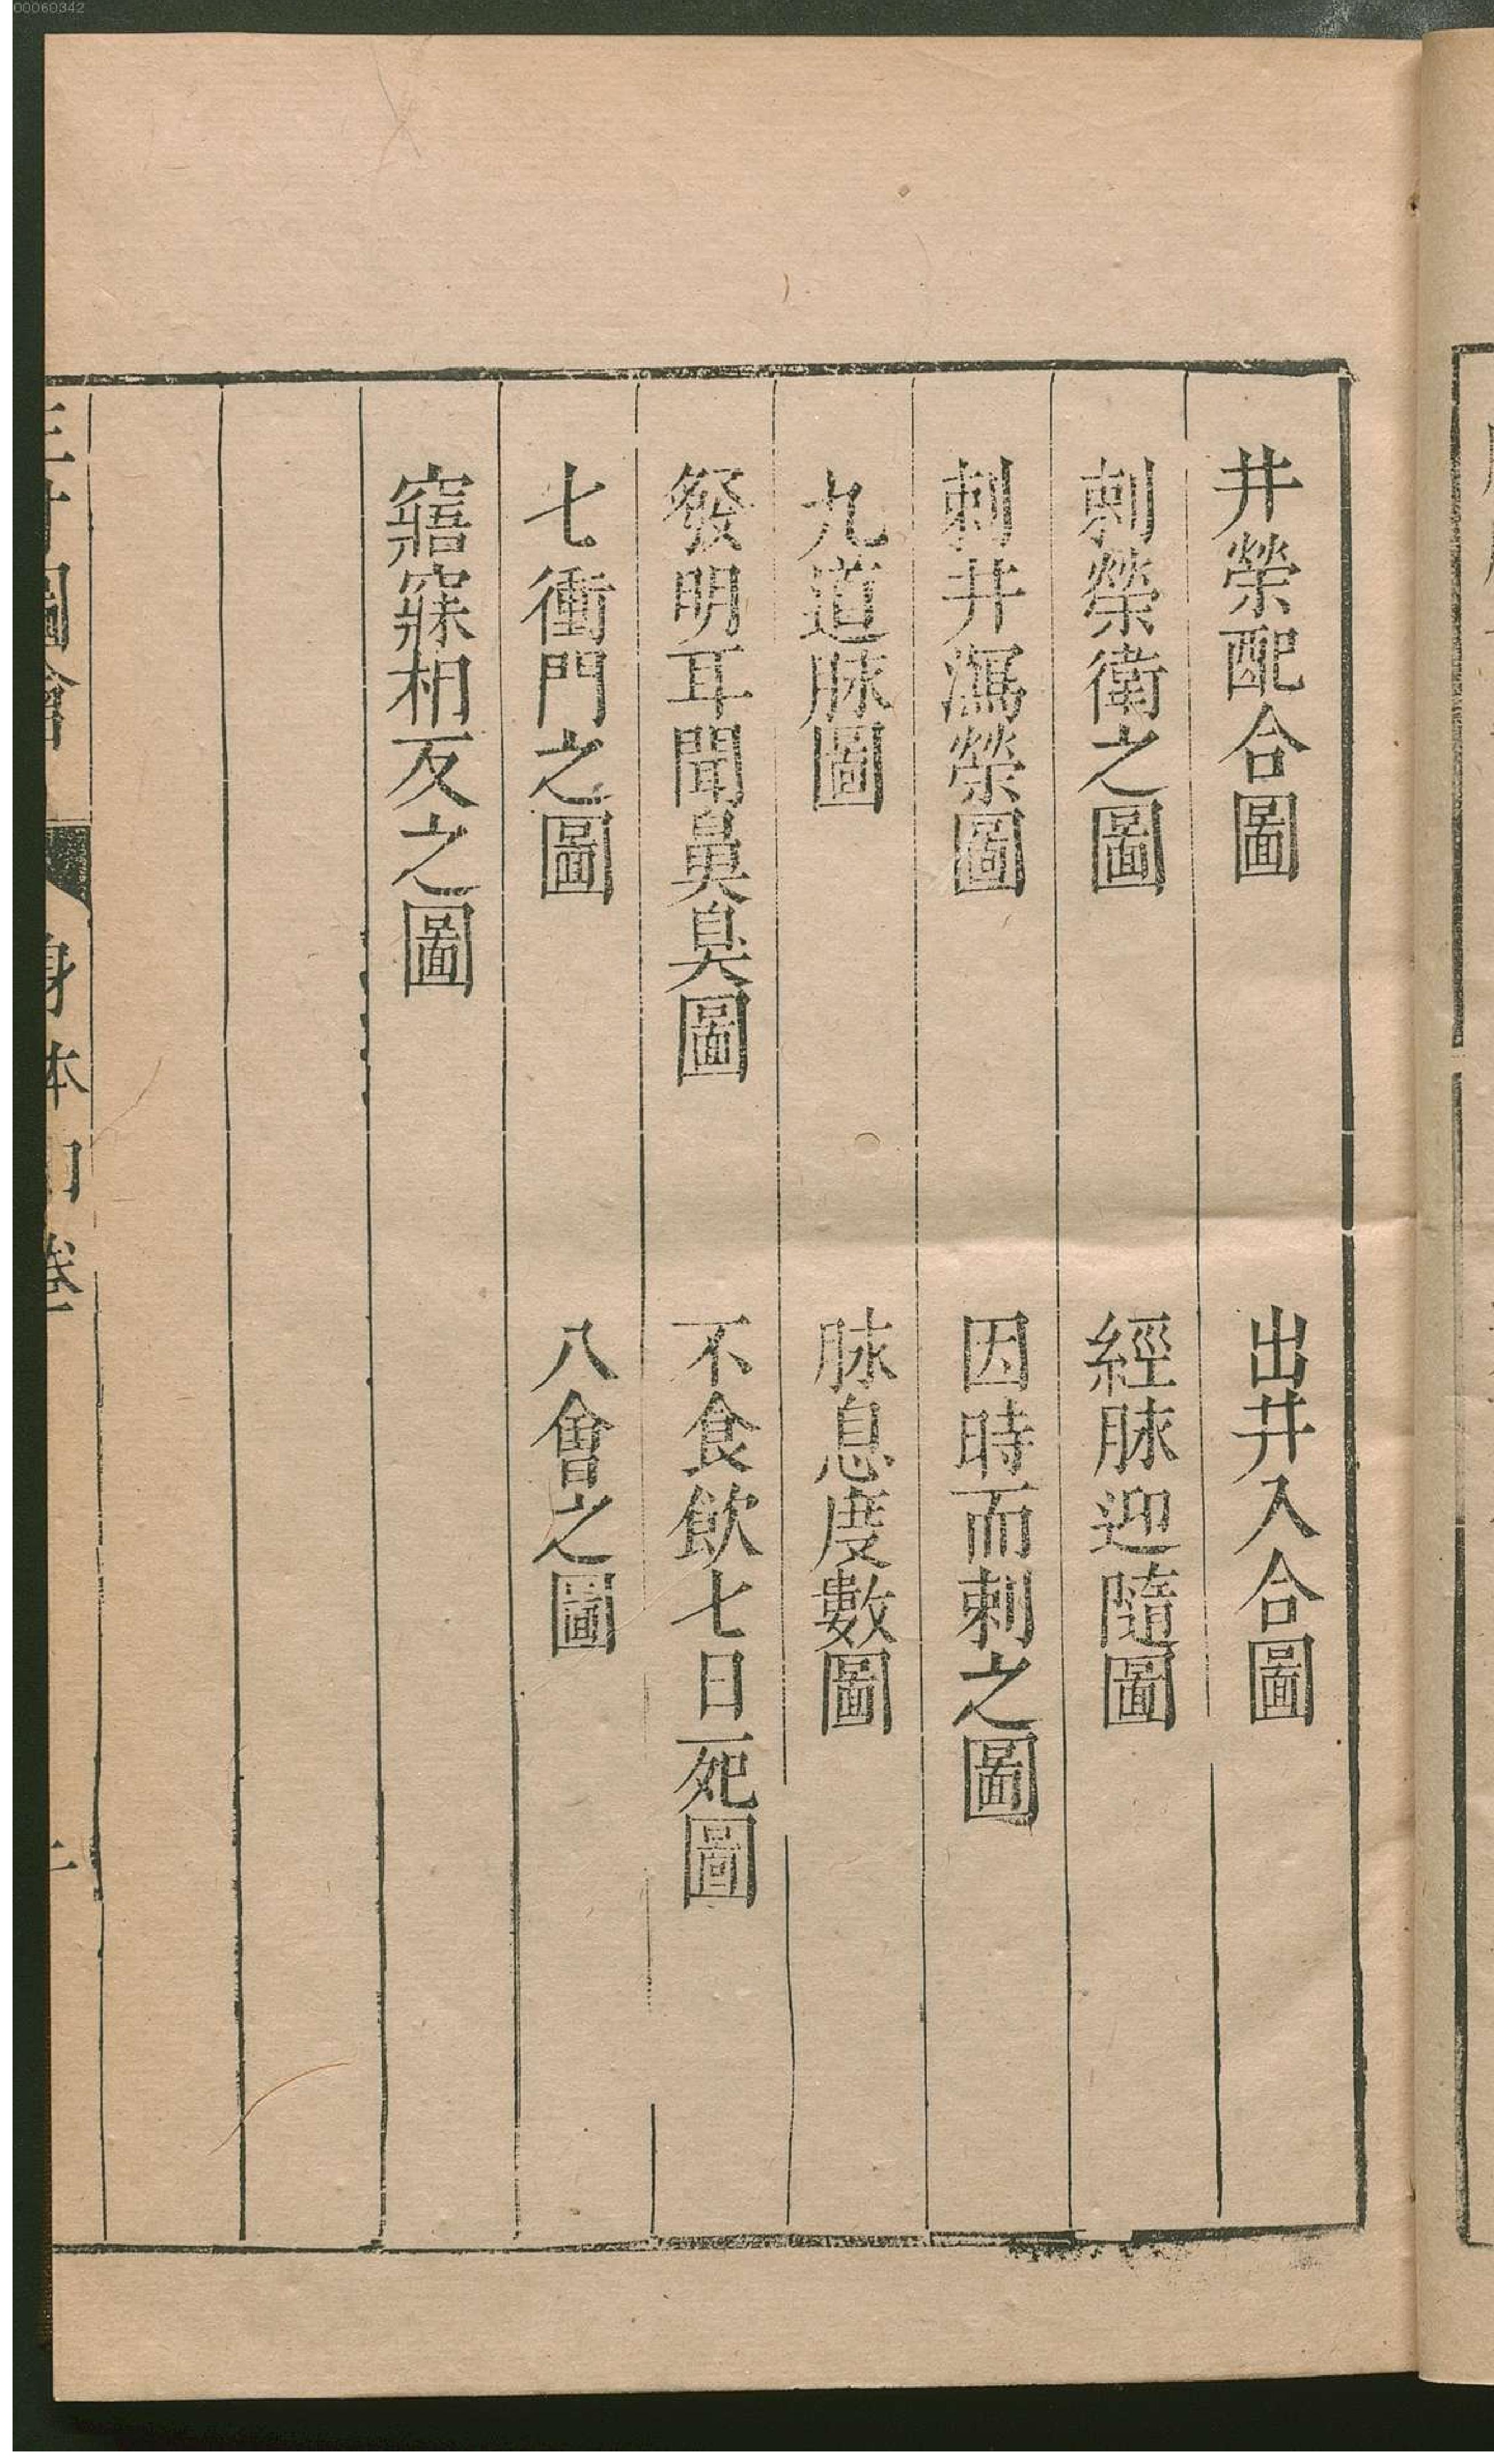 00060342
井榮配合圖
出井入合圖
刺榮衛之圖
經脉迎隨圖
刺井瀉榮圖
因時而刺之圖
九道脉圖
脉息度數圖
發明耳聞鼻臭圖
不食飲七日死圖
七衝門之圖
八會之圖
寤寐相反之圖
三才圖會
身体 卷